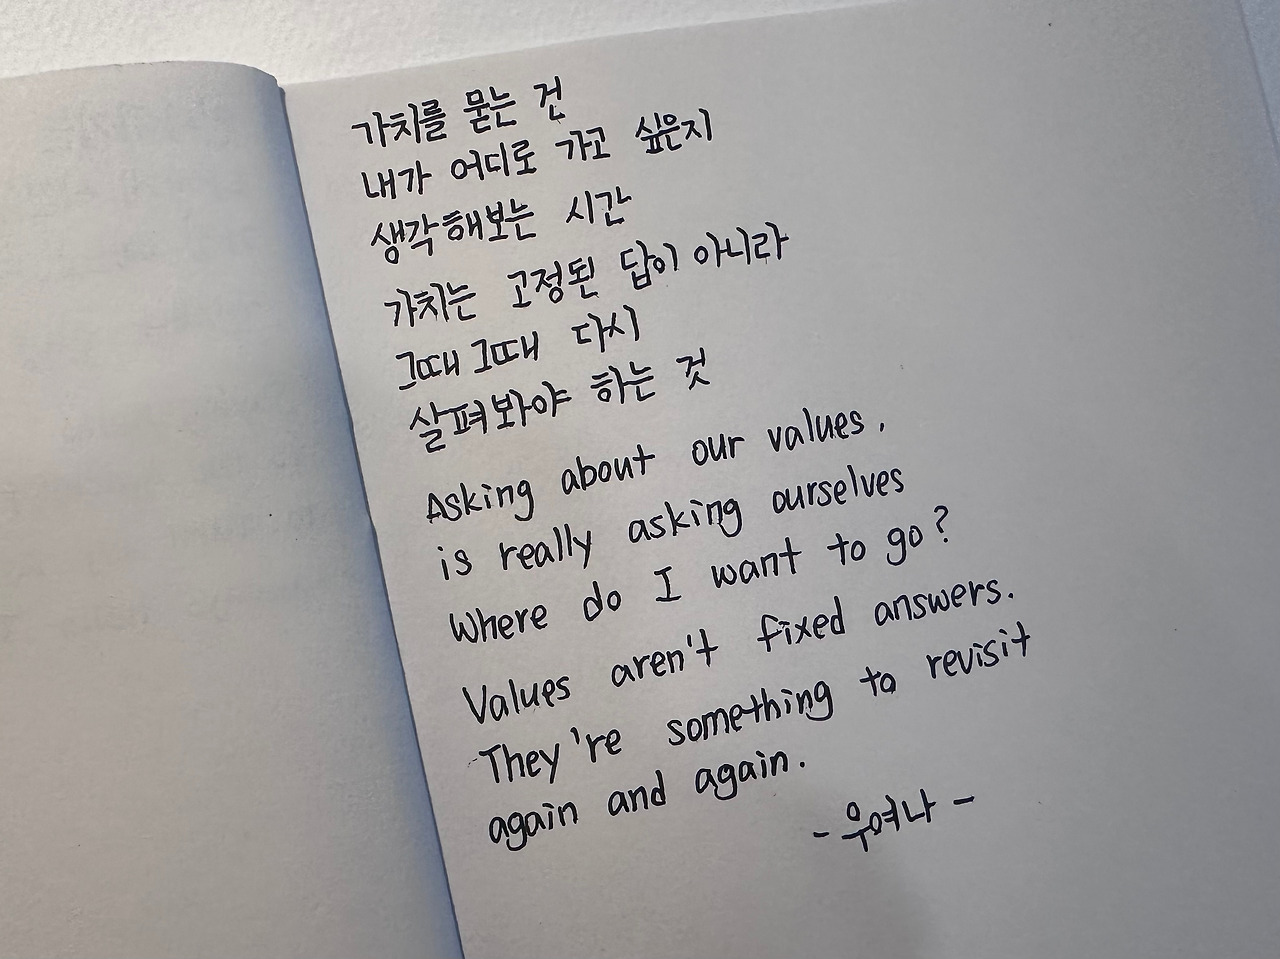 가치를 묻는 건
내가 어디로 가고 싶은지
생각해보는 시간
가치는 고정된 답이 아니라
그때 그때 다시
살펴봐야 하는 것
Asking about our values,
is really asking ourselves
Where do I want to go?
Values aren't fixed answers.
They're something to revisit
again and again.
- 우여나 -